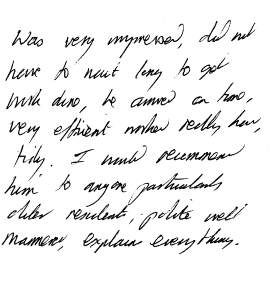 Was very impressed, did not
have to wait long to get
work done, he arrived on time,
very efficient worker really
tidy. I would recommend
him to anyone particularly
older residents, polite well
mannered, explain everything.